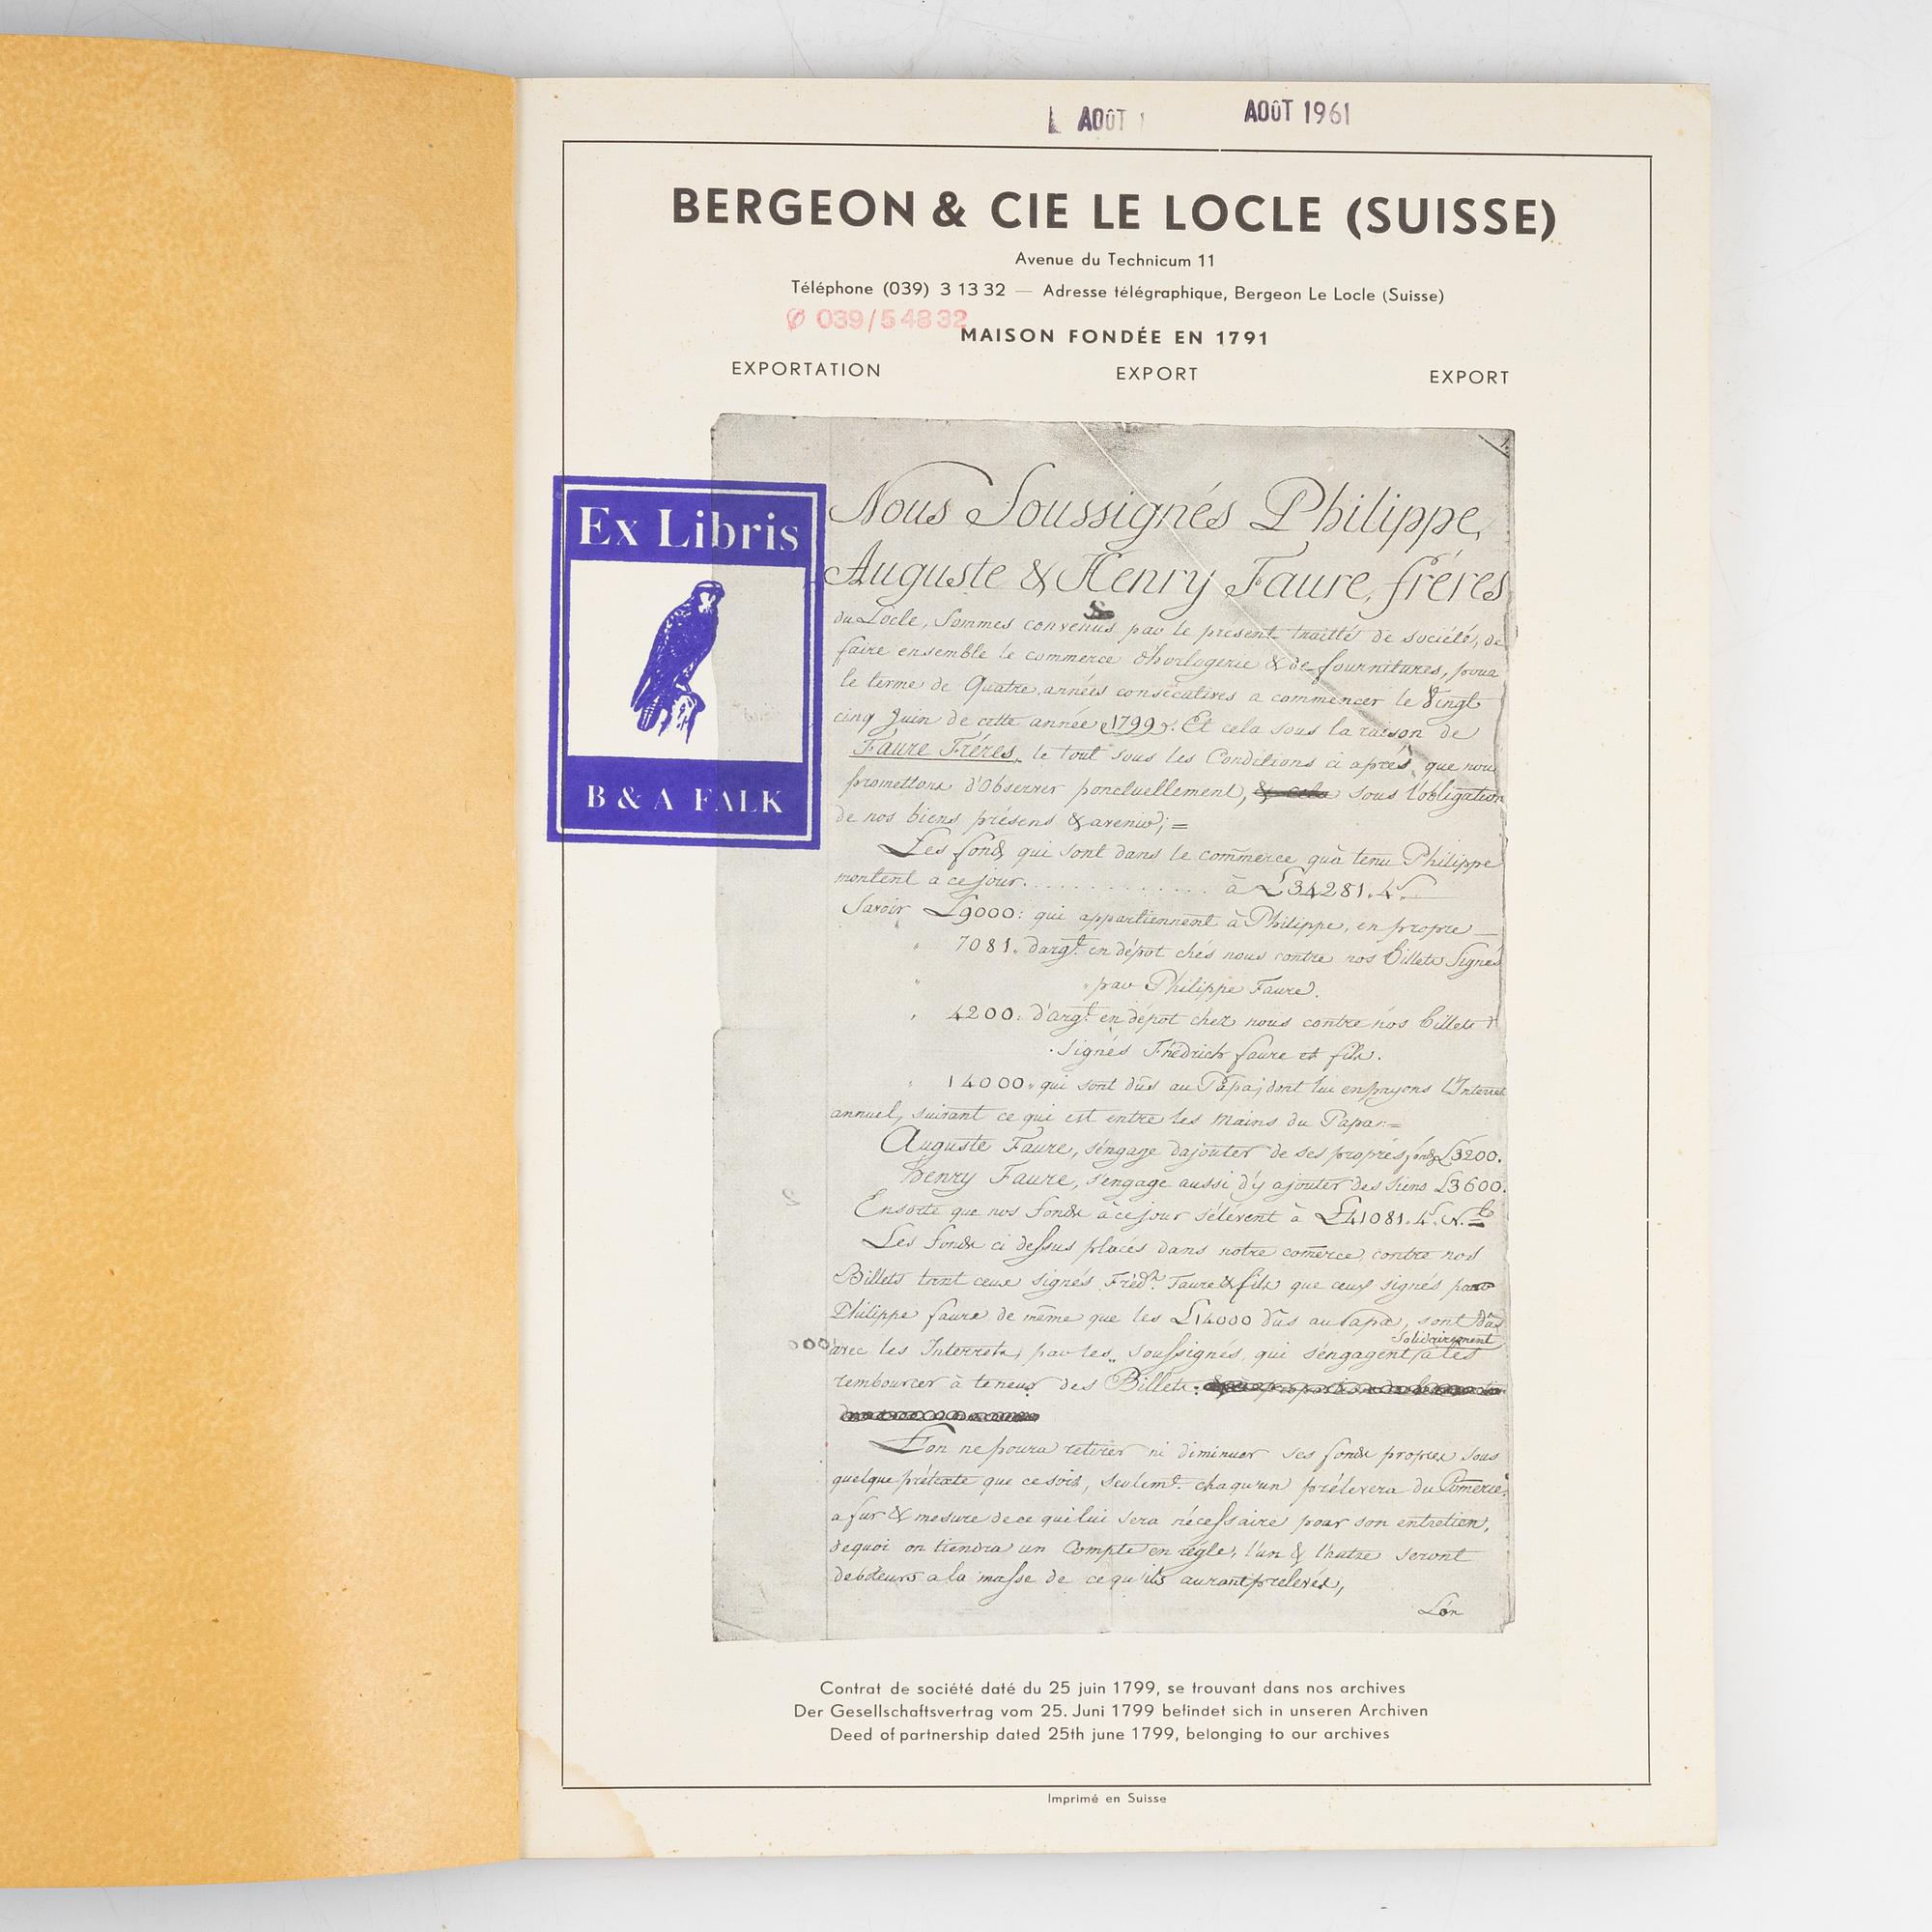 AOÛT
AOÛT 1961
BERGEON & CIE LE LOCLE (SUISSE)
Avenue du Technicum 11
Téléphone (039) 3 13 32 — Adresse télégraphique, Bergeon Le Locle (Suisse)
039/5 48 32
MAISON FONDÉE EN 1791
EXPORTATION EXPORT EXPORT
Ex Libris
B & A FALK
Nous Soussignés Philippe,
Auguste & Henry Faure, fréres
du Locle, Sommes convenus par le présent traitté de société, de
faire ensemble le commerce d'horlogerie & de fournitures, pour
le terme de Quatre années consécutives a commencer le Vingt
cinq Juin de cette année 1799. Et cela sous la raison de
Faure Fréres, le tout sous les Conditions ci aprés, que nous
promettons d'Observer ponctuellement, & cela sous l'obligation
de nos biens présens & avenir; =
Les fonds qui sont dans le commerce qu'a tenu Philippe
montent a ce jour. . . . . . . . . . . . . à £34281. 4
Savoir £9000: qui appartiennent à Philippe, en propre
" 7081. d'argt. en dépot chés nous contre nos billets Signés
" par Philippe Faure.
" 4200: d'argt. en dépot chez nous contre nos billets
signés Frédrich faure et fils.
" 14000. qui sont dûs au Papa, dont lui en payons l'Interret
annuel, suivant ce qui est entre les mains du Papa. =
Auguste Faure, s'engage d'ajouter de ses propres fonds £3200.
Henry Faure, s'engage aussi d'y ajouter des siens £3600.
Ensorte que nos fonds à ce jour s'élévent à £41081. 4
Les fonds ci dessus placés dans notre comerce, contre nos
Billets tant ceux signés Frédh. Faure & fils que ceux signés par
Philippe faure de même que les £14000 dûs au Papa, sont dûs
solidairement
avec les Interrets, par les soussignés, qui s'engagent a les
rembourcer à teneur des Billets.
L'on ne poura retirer ni diminuer ses fonds propres sous
quelque prétexte que ce soit, seulemt. chaqu'un prélevera du Comerce
a fur & mesure de ce qui lui sera nécessaire pour son entretien,
dequoi on tiendra un Compte en régle, l'un & l'autre seront
debiteurs a la masse de ce qu'ils auront prelevés,
L'on
Contrat de société daté du 25 juin 1799, se trouvant dans nos archives
Der Gesellschaftsvertrag vom 25. Juni 1799 befindet sich in unseren Archiven
Deed of partnership dated 25th june 1799, belonging to our archives
Imprimé en Suisse